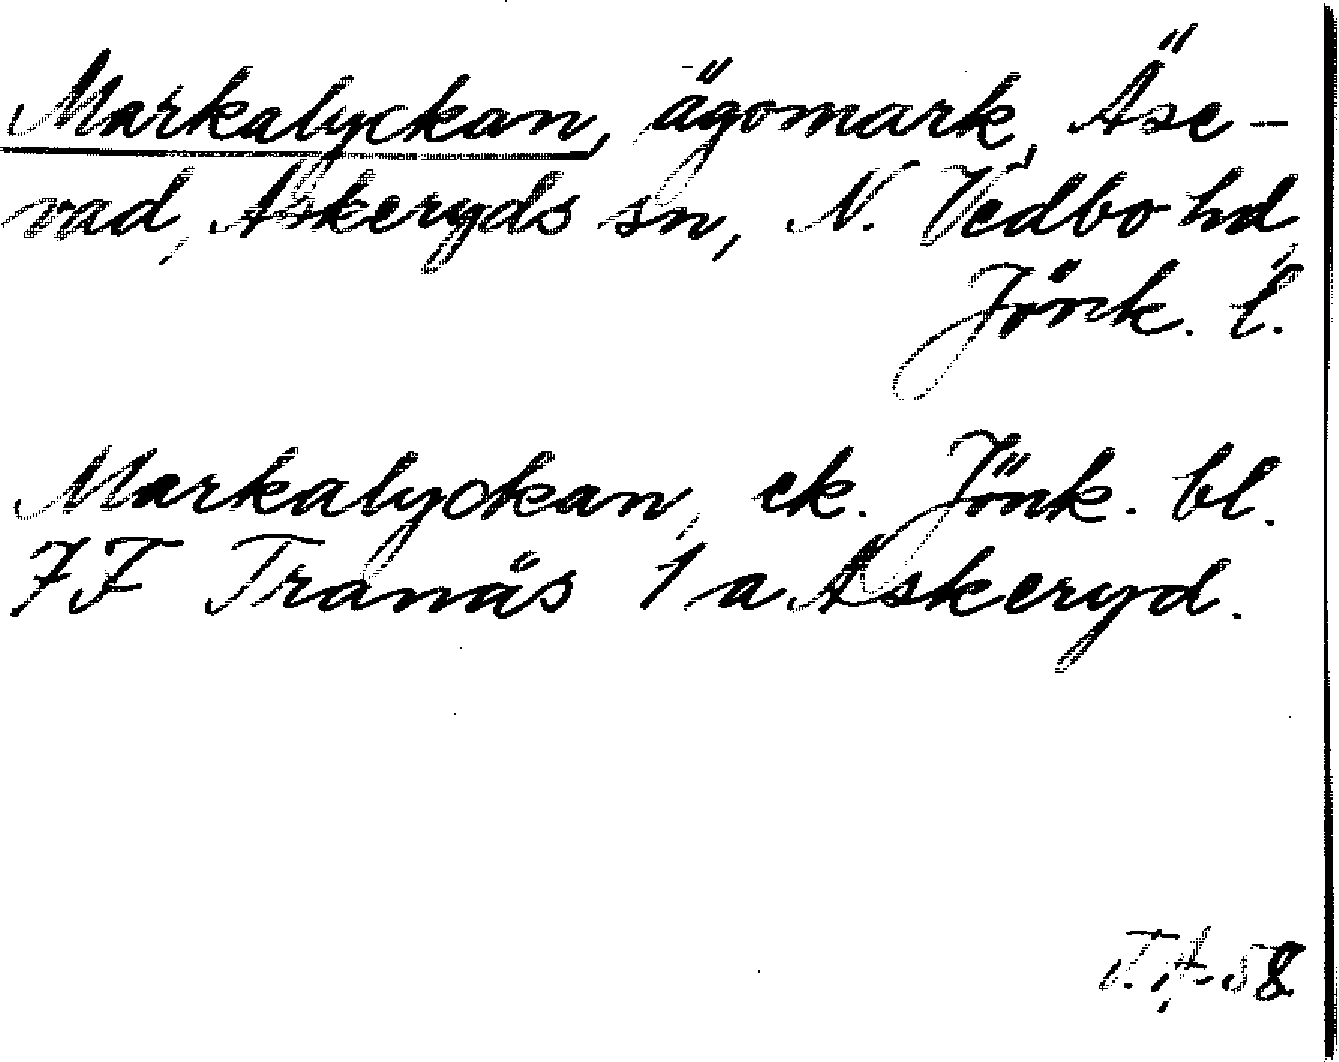 Markalyckan, ägomark, Äse-
vad, Askeryds sn, N. Vedbo hd,
Jönk. l.
Markalyckan, ek. Jönk. bl.
7F Tranås 1 a Askeryd.
T.A. 58